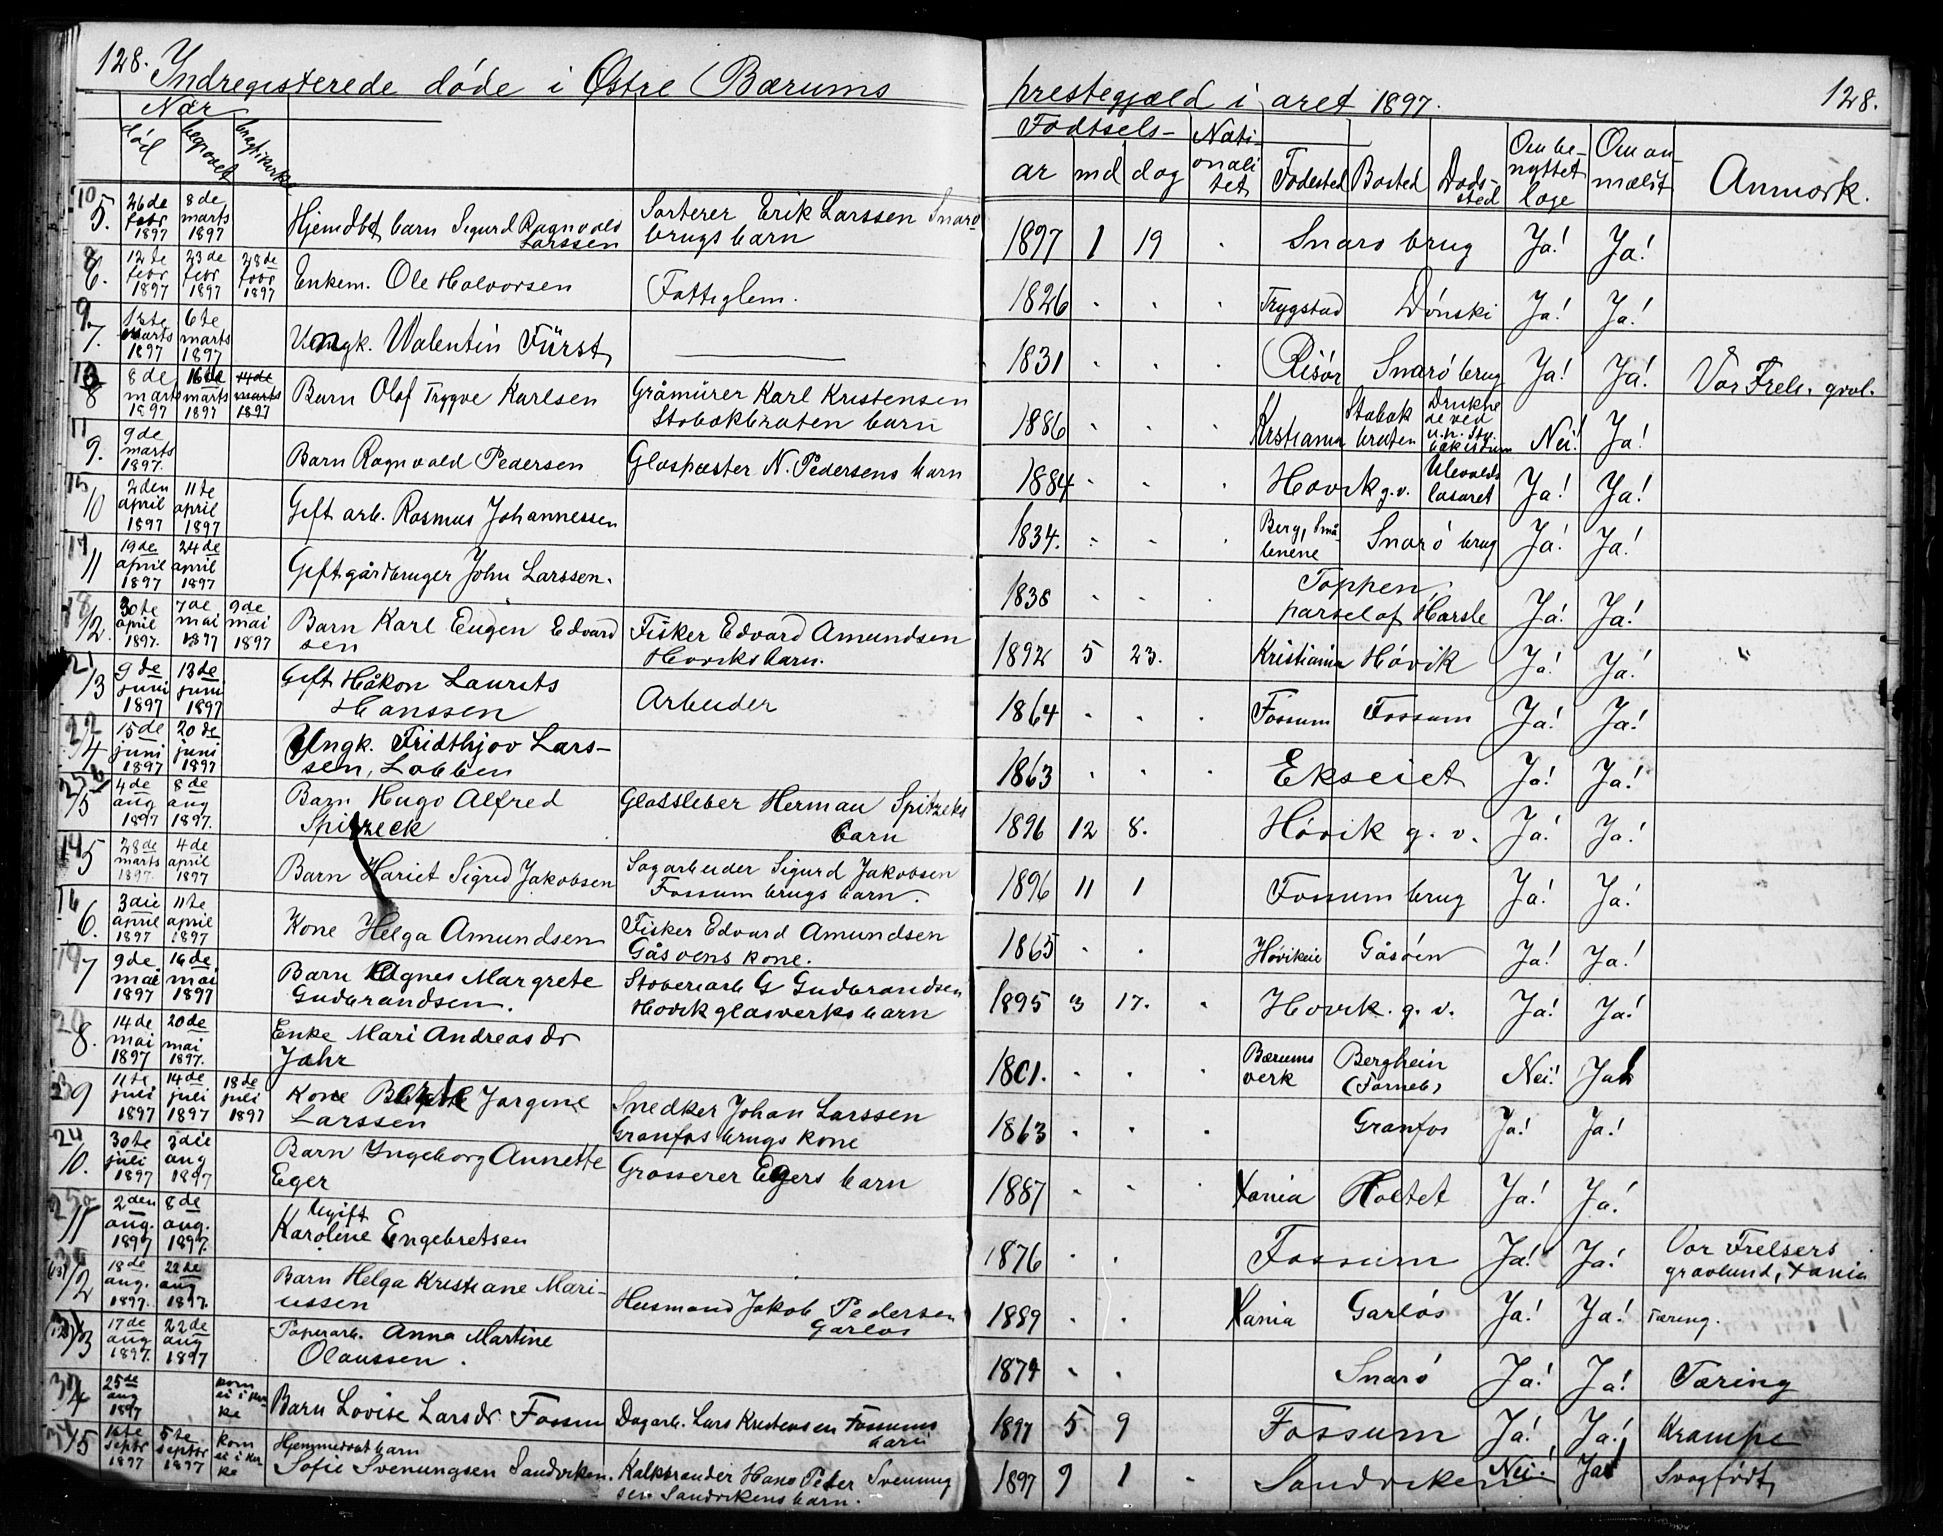 128. Indregisterede døde i Østre Bærums prestegjæld i aret 1897. 128.
Nær
død begravet
Fødtsels-
ar md dag Nationalitet Fødested Bosted Dødssted Om benyttet læge Om anmælit Anmærk.
5. 26de febr 1897 8de marts 1897 Hjemdbt barn Sigurd Ragnvald Larssen Sorterer Erik Larssen Snarøbrugs barn 1897 1 19 Snarø brug Ja! Ja!
6. 12te febr 1897 23de febr 1897 28de febr 1897 Enkem. Ole Halvorsen Fattiglem. 1826 Trygstad Dønski Ja! Ja!
7. 1ste marts 1897 6te marts 1897 Ungk. Walentin Fürst 1831 Risør Snarø brug Ja! Ja! Vor Frels. gravl.
8 8de marts 1897 16de marts 1897 14de marts 1897 Barn Olaf Trygve Karlsen Gråmürer Karl Kristensen Stabækbraten barn 1886 Kristiania Stabæk braten Nei! Ja!
9. 9de marts 1897. Barn Ragnvald Pedersen Glaspuster N. Pedersens barn 1884 Høvik g.v. Ulevolds lasaret Ja! Ja!
10 2den april 1897 11te april 1897 Gift arb. Rasmus Johannessen 1834. Berg, Smålenene Snarø brug Ja! Ja!
11 19de april 1897 24de april 1897 Gift gårdbruger John Larssen. 1838 Toppen, parsel af Harsle Ja! Ja!
12. 30te april 1897. 7de mai 1897 9de mai 1897 Barn Karl Eugen Edvardsen Fisker Edvard Amundsen Høviks barn. 1892 5 23. Kristiania Høvik Ja! Ja! "
13 9de juni 1897 13de juni 1897 Gift Håkon Laurits Hanssen Arbeider 1864 Fossum Fossum Ja! Ja!
14 15de juni 1897 20de juni 1897 Ungk. Fridthjov Larssen, Labben 1863 Ekseiet Ja! Ja!
15 4de aug 1897 8de aug 1897. Barn Hugo Alfred Spitzeck Glassleber Herman Spitzeks barn 1896 12 8. Høvik g. v. Ja! Ja!
5 28de marts 1897. 4de april 1897 Barn Hariet Sigrid Jakobsen Sagarbeider Sigurd Jakobsen Fossum brugs barn. 1896 11 1 Fossum brug Ja! Ja!
6. 3die april 1897 11te april 1897 Kone Helga Amundsen Fisker Edvard Amundsen Gåsøens kone. 1865 Høvikeie Gåsøen Ja! Ja!
7 9de mai 1897 16de mai 1897 Barn Agnes Margrete Gudbrandsen. Støberiarb G Gudbrandsen Høvik glasverks barn 1895 3 17. Høvik. g. v. Ja! Ja!
8. 14de mai 1897 20de mai 1897. Enke Mari Andreasdr Jahr 1801. Bærums verk Berghein (Forneb) Nei! Ja!
9 11te juli 1897 14de juli 1897 18de juli 1897 Kone Berte Jørgine Larssen Snedker Johan Larssen Granfos brugs kone 1863 Granfos Ja! Ja!
10. 30te juli 1897 3die aug 1897 Barn Ingeborg Annette Eger Grosserer Egers barn 1887 Xania Holtet Ja! Ja!
11 2den aug. 1897 8de aug. 1897. Ugift Karoline Engebretsen 1876 Fossum Ja! Ja! Vor Frelsers gravlund, Xania
12 18de aug. 1897. 22de aug 1897. Barn Helga Kristiane Mariussen Husmand Jakob Pedersen Garløs 1889 Xania Garløs Ja! Ja! Tæring.
13 17de aug 1897. 22de aug 1897 Papirarb. Anna Martine Olaussen. 1874 Snarø Ja! Ja! Tæring
14 25de aug 1897 kom ei i kirke Barn Lovise Larsdr. Fossum Dagarb. Lars Kristensen Fossums barn 1897 5 9 Fossum Ja! Ja! Krampe
15 1ste septbr 1897 5te septbr 1897 kom ei i kirke Hjemmedøbt barn Sofie Svenungsen Sandviken. Kalkbrænder Hans Peter Svenungsen Sandvikens barn. 1897 9 1 Sandviken Nei! Ja! Svagfødt